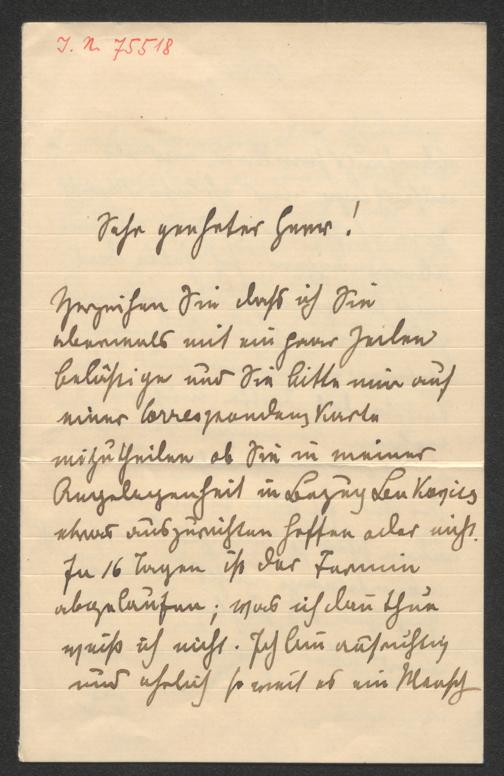 J. N. 75518
Sehr geehrter Herr!
Verzeihen Sie daß ich Sie
abermals mit ein paar Zeilen
belästige und Sie bitte mir auf
einer Correspondenz Karte
mitzutheilen ob Sie in meiner
Angelegenheit in Bezug
etwas auszurichten hoffen oder nicht.
In 16 Tagen ist der Termin
abgelaufen; was ich dan thue
weiß ich nicht. Ich bin aufrichtig
und ehrlich so weit es ein Mensch